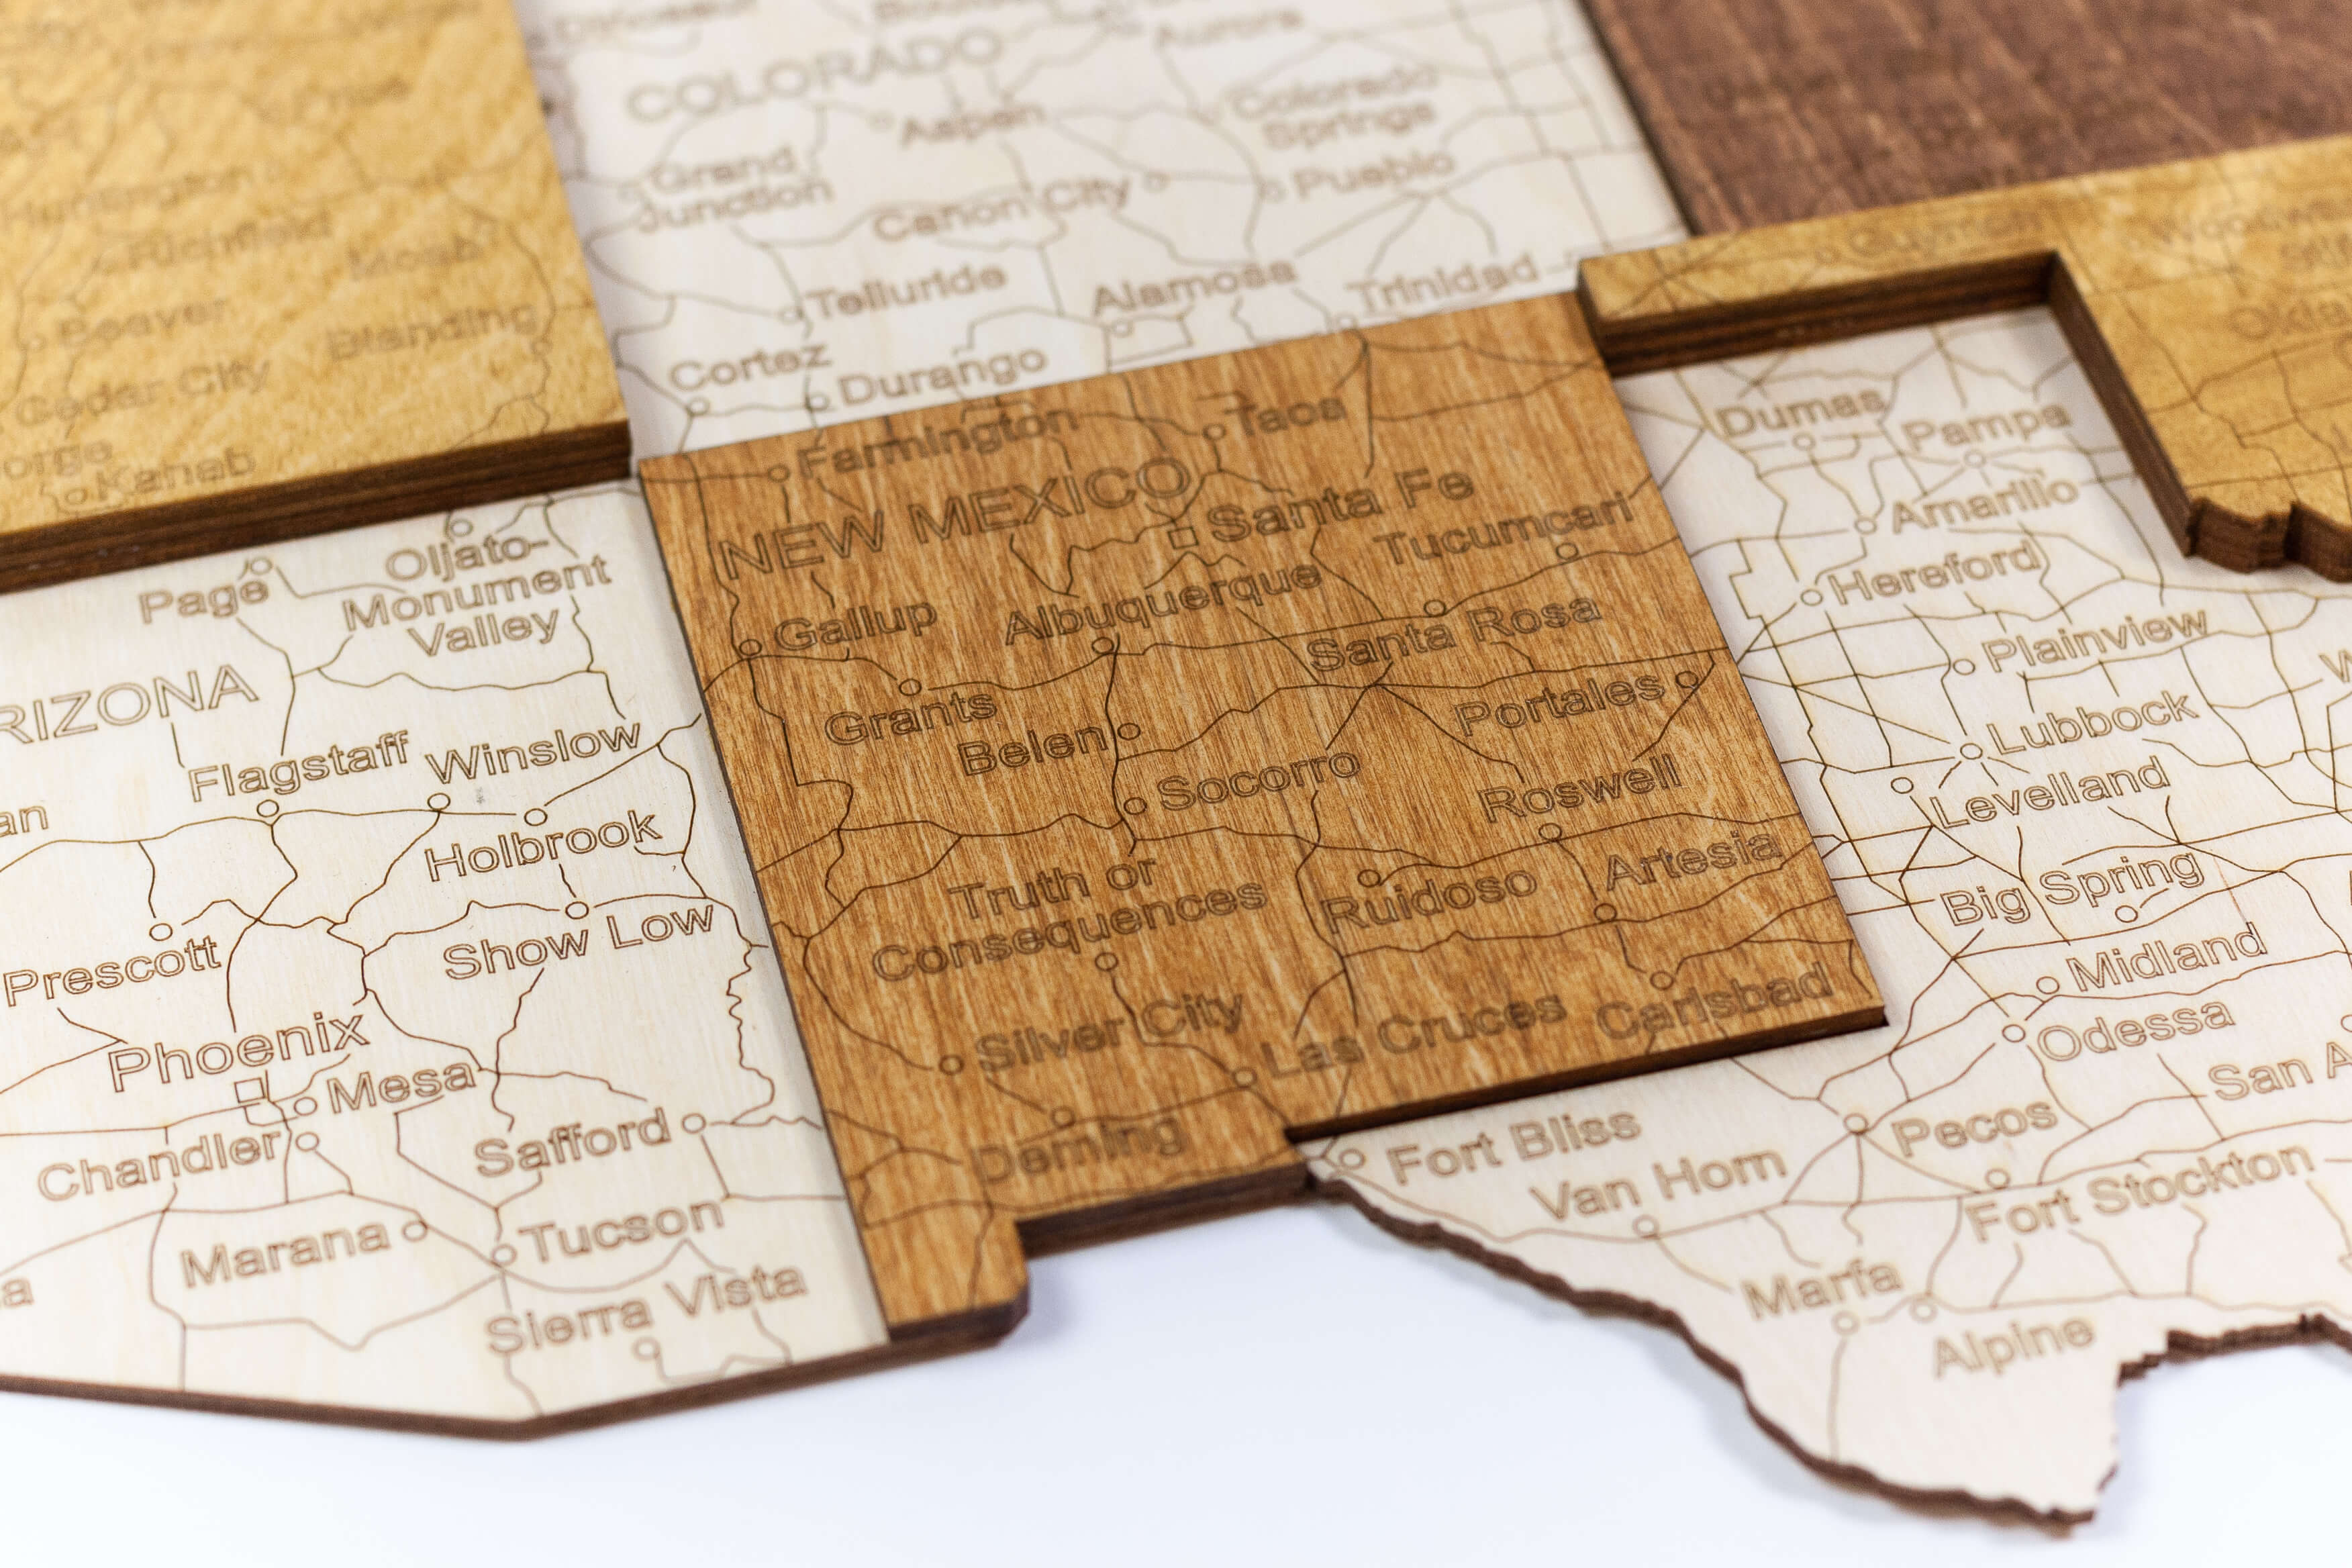 COLORADO
Aurora
Aspen
Colorado
Springs
Grand
Junction
Canon City
Pueblo
Telluride
Alamosa
Trinidad
Cortez
Durango
Huntington
Richfield
Moab
Beaver
Blanding
Cedar City
orge
Kanab
Guymon
Dumas
Pampa
Amarillo
Hereford
Plainview
Lubbock
Levelland
Big Spring
Midland
Odessa
San A
Pecos
Fort Bliss
Van Horn
Fort Stockton
Marfa
Alpine
Farmington
Taos
NEW MEXICO
Santa Fe
Tucumcari
Gallup
Albuquerque
Santa Rosa
Grants
Belen
Portales
Socorro
Roswell
Truth or
Consequences
Ruidoso
Artesia
Silver City
Las Cruces
Carlsbad
Deming
Page
Oljato-
Monument
Valley
RIZONA
Flagstaff
Winslow
an
Holbrook
Prescott
Show Low
Phoenix
Mesa
Chandler
Safford
Marana
Tucson
a
Sierra Vista